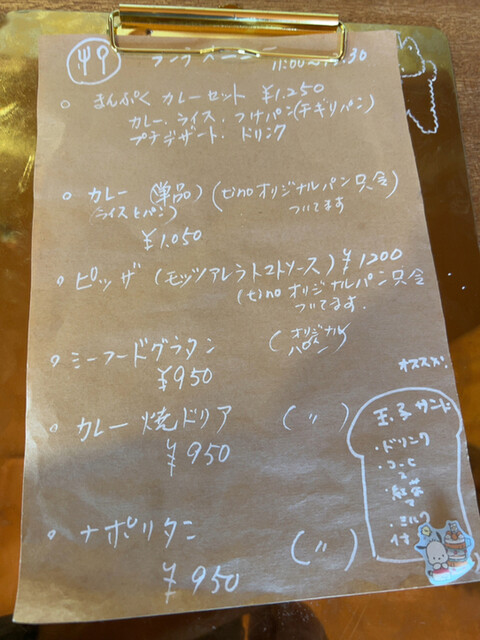 ランチメニュー
まんぷく カレーセット ¥1.250
カレー、ライス、つけパン(チギリパン)
プチデザート、ドリンク
カレー (単品) (tinoオリジナルパン只今
(ライスとパン) ついてます
¥1.050
ピッザ (モッツアレラトマトソース) ¥1200
(tinoオリジナルパン只今
ついてます.
シーフードグラタン (オリジナル
¥950
カレー焼ドリア (〃)
¥950
ナポリタン (〃)
¥950
オススメ!
玉子サンド
・ドリンク
・紅茶
・ミルク
付